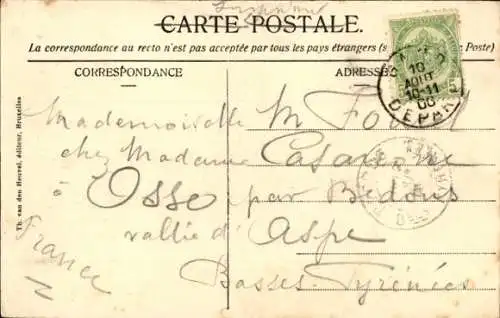 CARTE POSTALE.
La correspondance au recto n'est pas acceptée par tous les pays étrangers (s Poste)
CORRESPONDANCE
ADRESSE
10
AOUT
10-11
DEPART
Mademoiselle M
chez Madame
à Osse par Bedous
vallée d'Aspe
Basses-Pyrénées
France
Th. van den Heuvel, éditeur, Bruxelles